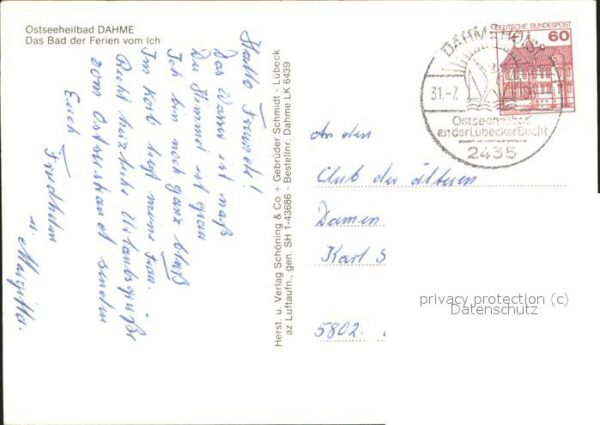 Ostseeheilbad DAHME
Das Bad der Ferien vom Ich
Hallo Freunde!
Das Wasser ist naß
Der Himmel ist grau
Ich bin noch ganz blaß
Im Korb liegt meine Frau.
Recht herzliche Urlaubsgrüße
vom Ostseestrand senden
Euch Friedhelm
u. Margitta.
Herst. u. Verlag Schöning & Co + Gebrüder Schmidt - Lübeck
az Luftaufn., gen. SH 1-43686 - Bestellnr. Dahme LK 6439
DEUTSCHE BUNDESPOST
60
DAHME, HOLST
31.-7.
Ostseeheilbad
an der Lübecker Bucht
2435
An den
Club der älteren
Damen
Karl S
5802.
privacy protection (c)
Datenschutz